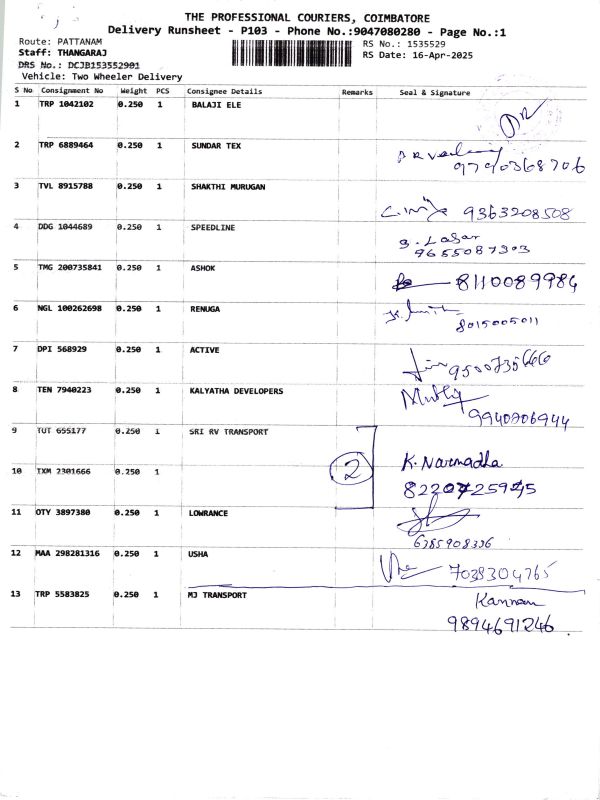 THE PROFESSIONAL COURIERS, COIMBATORE
Delivery Runsheet - P103 - Phone No.:9047080280 - Page No.:1
Route: PATTANAM RS No.: 1535529
Staff: THANGARAJ RS Date: 16-Apr-2025
DRS No.: DCJB153552901
Vehicle: Two Wheeler Delivery
S No Consignment No Weight PCS Consignee Details Remarks Seal & Signature
1 TRP 1042102 0.250 1 BALAJI ELE
2 TRP 6889464 0.250 1 SUNDAR TEX
9790368706
3 TVL 8915788 0.250 1 SHAKTHI MURUGAN
9363208508
4 DDG 1044689 0.250 1 SPEEDLINE
9655087303
5 TMG 200735841 0.250 1 ASHOK
8110089984
6 NGL 100262698 0.250 1 RENUGA
8015005011
7 DPI 568929 0.250 1 ACTIVE
9500735666
8 TEN 7940223 0.250 1 KALYATHA DEVELOPERS
9940206944
9 TUT 655177 0.250 1 SRI RV TRANSPORT
2 K. Narmadha
10 TXM 2301666 0.250 1
8220725945
11 OTY 3897380 0.250 1 LOWRANCE
6385908336
12 MAA 298281316 0.250 1 USHA
7038304765
13 TRP 5583825 0.250 1 MJ TRANSPORT Kannan
9894691246